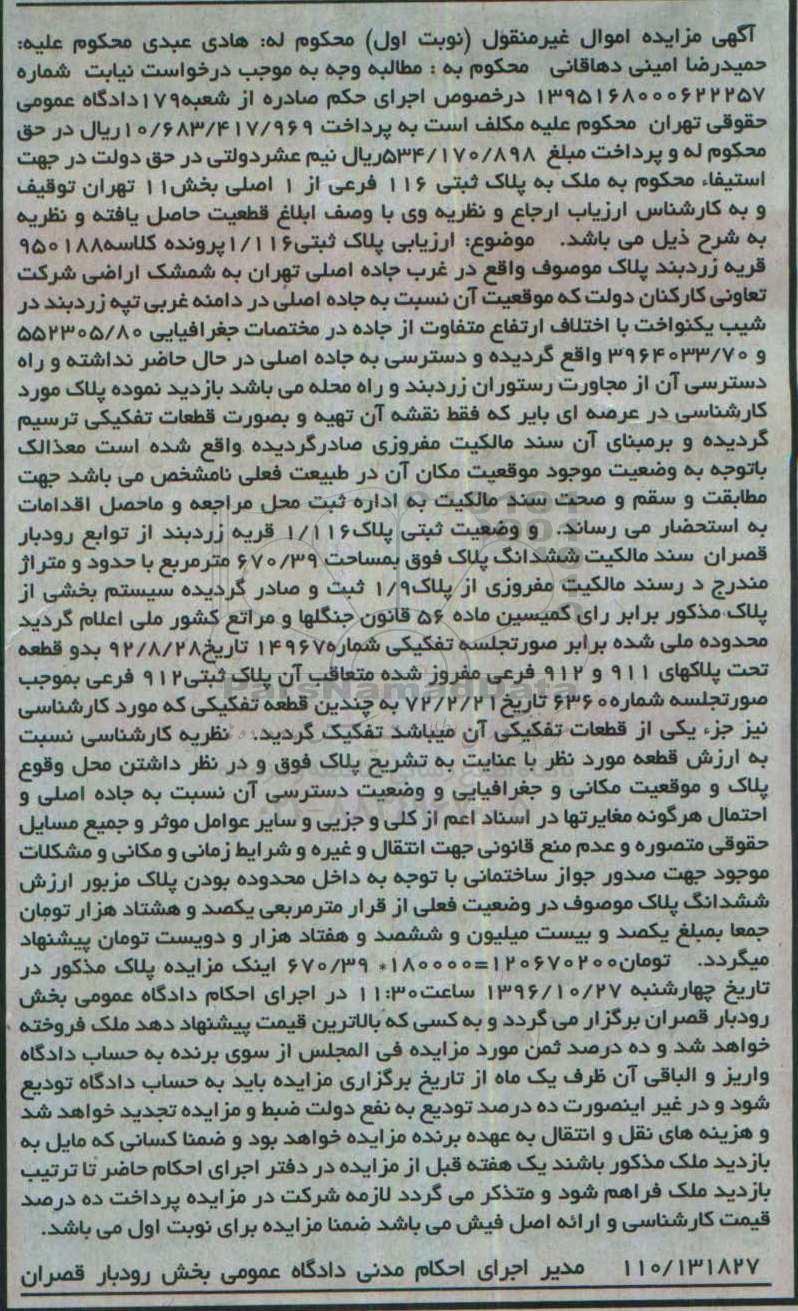 آگهی مزایده اموال غیرمنقول (نوبت اول) محکوم له: هادی عبدی محکوم علیه:
حمیدرضا امینی دهاقانی محکوم به : مطالبه وجه به موجب درخواست نیابت شماره
۱۳۹۵۱۶۸۰۰۰۶۲۲۲۵۷ درخصوص اجرای حکم صادره از شعبه۱۷۹دادگاه عمومی
حقوقی تهران محکوم علیه مکلف است به پرداخت ۱۰/۶۸۳/۴۱۷/۹۶۹ریال در حق
محکوم له و پرداخت مبلغ ۵۳۴/۱۷۰/۸۹۸ریال نیم عشردولتی در حق دولت در جهت
استیفاء محکوم به ملک به پلاک ثبتی ۱۱۶ فرعی از ۱ اصلی بخش۱۱ تهران توقیف
و به کارشناس ارزیاب ارجاع و نظریه وی با وصف ابلاغ قطعیت حاصل یافته و نظریه
به شرح ذیل می باشد. موضوع: ارزیابی پلاک ثبتی۱/۱۱۶پرونده کلاسه۹۵۰۱۸۸
قریه زردبند پلاک موصوف واقع در غرب جاده اصلی تهران به شمشک اراضی شرکت
تعاونی کارکنان دولت که موقعیت آن نسبت به جاده اصلی در دامنه غربی تپه زردبند در
شیب یکنواخت با اختلاف ارتفاع متفاوت از جاده در مختصات جغرافیایی ۵۵۲۳۰۵/۸۰
و ۳۹۶۴۰۳۳/۷۰ واقع گردیده و دسترسی به جاده اصلی در حال حاضر نداشته و راه
دسترسی آن از مجاورت رستوران زردبند و راه محله می باشد بازدید نموده پلاک مورد
کارشناسی در عرصه ای بایر که فقط نقشه آن تهیه و بصورت قطعات تفکیکی ترسیم
گردیده و برمبنای آن سند مالکیت مفروزی صادرگردیده واقع شده است معذالک
باتوجه به وضعیت موجود موقعیت مکان آن در طبیعت فعلی نامشخص می باشد جهت
مطابقت و سقم و صحت سند مالکیت به اداره ثبت محل مراجعه و ماحصل اقدامات
به استحضار می رساند. و وضعیت ثبتی پلاک۱/۱۱۶ قریه زردبند از توابع رودبار
قصران سند مالکیت ششدانگ پلاک فوق بمساحت ۶۷۰/۳۹ مترمربع با حدود و متراژ
مندرج د رسند مالکیت مفروزی از پلاک۱/۹ ثبت و صادر گردیده سیستم بخشی از
پلاک مذکور برابر رای کمیسین ماده ۵۶ قانون جنگلها و مراتع کشور ملی اعلام گردید
محدوده ملی شده برابر صورتجلسه تفکیکی شماره۱۴۹۶۷ تاریخ۹۲/۸/۲۸ بدو قطعه
تحت پلاکهای ۹۱۱ و ۹۱۲ فرعی مفروز شده متعاقب آن پلاک ثبتی۹۱۲ فرعی بموجب
صورتجلسه شماره۶۳۶۰ تاریخ۷۲/۲/۲۱ به چندین قطعه تفکیکی که مورد کارشناسی
نیز جزء یکی از قطعات تفکیکی آن میباشد تفکیک گردید. نظریه کارشناسی نسبت
به ارزش قطعه مورد نظر با عنایت به تشریح پلاک فوق و در نظر داشتن محل وقوع
پلاک و موقعیت مکانی و جغرافیایی و وضعیت دسترسی آن نسبت به جاده اصلی و
احتمال هرگونه مغایرتها در اسناد اعم از کلی و جزیی و سایر عوامل موثر و جمیع مسایل
حقوقی متصوره و عدم منع قانونی جهت انتقال و غیره و شرایط زمانی و مکانی و مشکلات
موجود جهت صدور جواز ساختمانی با توجه به داخل محدوده بودن پلاک مزبور ارزش
ششدانگ پلاک موصوف در وضعیت فعلی از قرار مترمربعی یکصد و هشتاد هزار تومان
جمعا بمبلغ یکصد و بیست میلیون و ششصد و هفتاد هزار و دویست تومان پیشنهاد
میگردد. تومان۱۲۰۶۷۰۲۰۰=۱۸۰۰۰۰* ۶۷۰/۳۹ اینک مزایده پلاک مذکور در
تاریخ چهارشنبه ۱۳۹۶/۱۰/۲۷ ساعت۱۱:۳۰ در اجرای احکام دادگاه عمومی بخش
رودبار قصران برگزار می گردد و به کسی که بالاترین قیمت پیشنهاد دهد ملک فروخته
خواهد شد و ده درصد ثمن مورد مزایده فی المجلس از سوی برنده به حساب دادگاه
واریز و الباقی آن ظرف یک ماه از تاریخ برگزاری مزایده باید به حساب دادگاه تودیع
شود و در غیر اینصورت ده درصد تودیع به نفع دولت ضبط و مزایده تجدید خواهد شد
و هزینه های نقل و انتقال به عهده برنده مزایده خواهد بود و ضمنا کسانی که مایل به
بازدید ملک مذکور باشند یک هفته قبل از مزایده در دفتر اجرای احکام حاضر تا ترتیب
بازدید ملک فراهم شود و متذکر می گردد لازمه شرکت در مزایده پرداخت ده درصد
قیمت کارشناسی و ارائه اصل فیش می باشد ضمنا مزایده برای نوبت اول می باشد.
۱۱۰/۱۳۱۸۲۷ مدیر اجرای احکام مدنی دادگاه عمومی بخش رودبار قصران
ParsNamadData